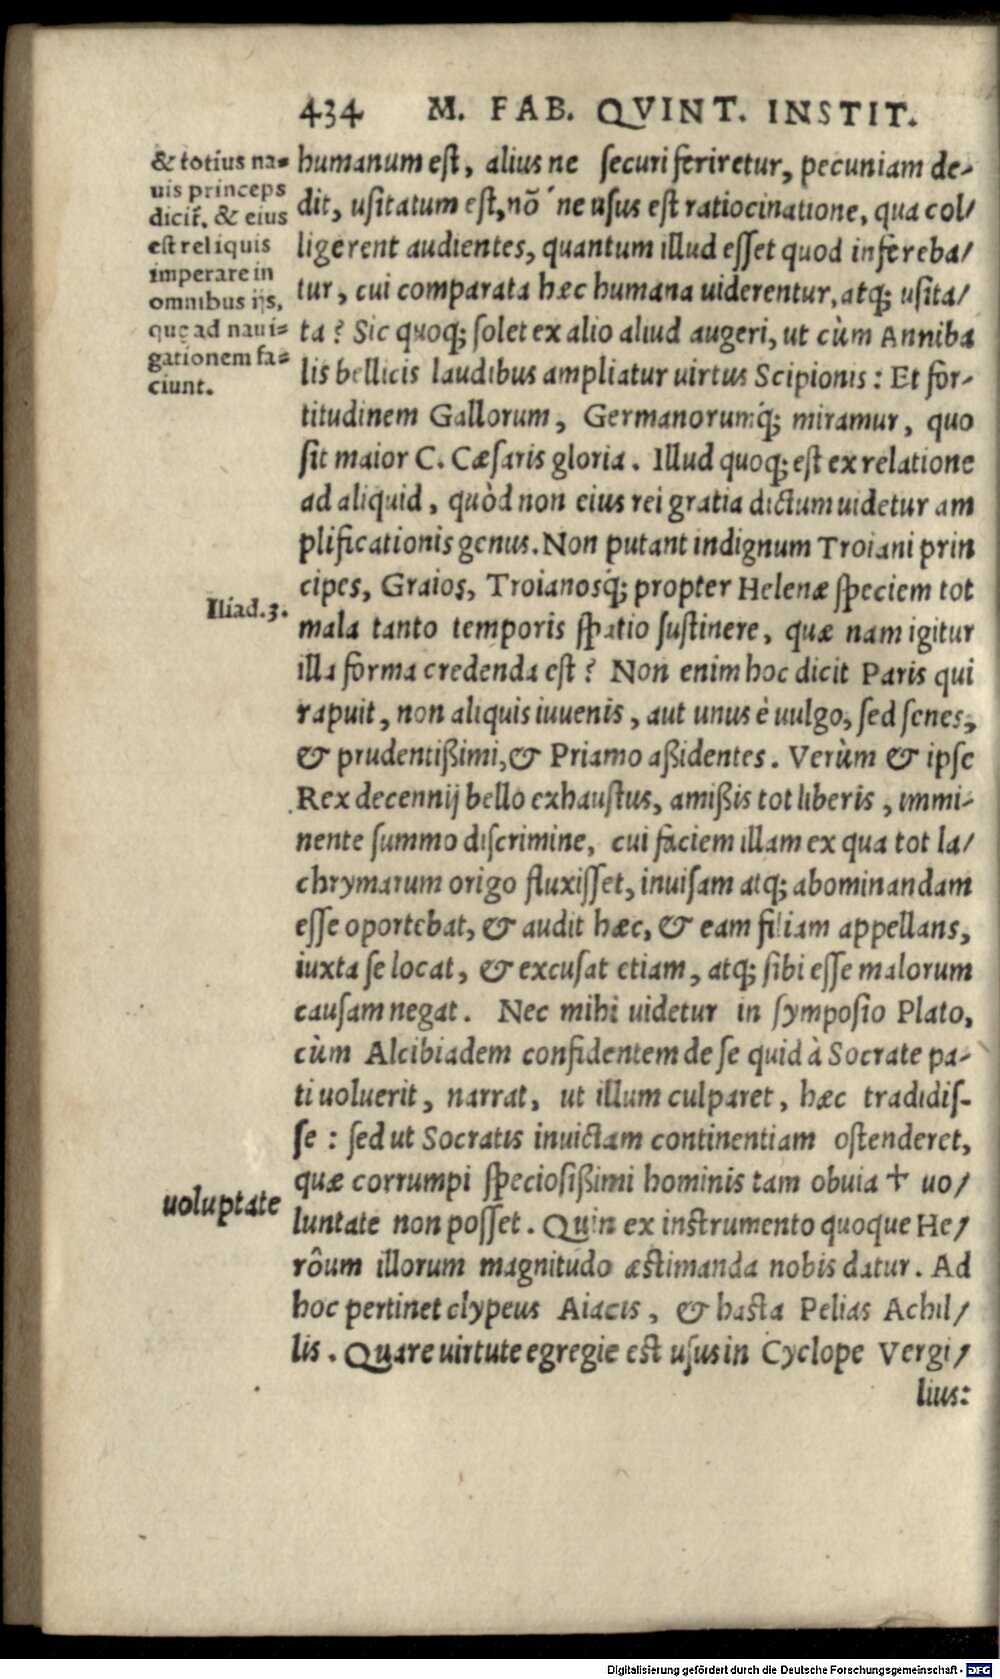 434 M. FAB. QVINT. INSTIT.
& totius na=
uis princeps
dicit̃. & eius
est reliquis
imperare in
omnibus ijs,
quę ad naui=
gationem fa=
ciunt.
humanum est, alius ne ſecuri feriretur, pecuniam de-
dit, uſitatum est, nõ ne uſus est ratiocinatione, qua col/
ligerent audientes, quantum illud eſſet quod infereba/
tur, cui comparata hæc humana uiderentur, atq; uſita/
ta? Sic quoq; ſolet ex alio aliud augeri, ut cùm Anniba
lis bellicis laudibus ampliatur uirtus Scipionis: Et for-
titudinem Gallorum, Germanorumq́; miramur, quo
ſit maior C. Cæſaris gloria. Illud quoq; est ex relatione
ad aliquid, quòd non eius rei gratia dictum uidetur am
plificationis genus. Non putant indignum Troiani prin
cipes, Graios, Troianosq́; propter Helenæ ſpeciem tot
Iliad.3.
mala tanto temporis ſpatio ſustinere, quæ nam igitur
illa forma credenda est? Non enim hoc dicit Paris qui
rapuit, non aliquis iuuenis, aut unus è uulgo, ſed ſenes,
& prudentißimi, & Priamo aßidentes. Verùm & ipſe
Rex decennij bello exhaustus, amißis tot liberis, immi-
nente ſummo diſcrimine, cui faciem illam ex qua tot la/
chrymarum origo fluxiſſet, inuiſam atq; abominandam
eſſe oportebat, & audit hæc, & eam filiam appellans,
iuxta ſe locat, & excuſat etiam, atq; ſibi eſſe malorum
cauſam negat. Nec mihi uidetur in ſympoſio Plato,
cùm Alcibiadem confidentem de ſe quid à Socrate pa-
ti uoluerit, narrat, ut illum culparet, hæc tradidiſ-
ſe: ſed ut Socratis inuictam continentiam ostenderet,
quæ corrumpi ſpecioſißimi hominis tam obuia + uo/
uoluptate
luntate non poſſet. Quin ex instrumento quoque He/
rôum illorum magnitudo æstimanda nobis datur. Ad
hoc pertinet clypeus Aiacis, & hasta Pelias Achil/
lis. Quare uirtute egregie est uſus in Cyclope Vergi/
lius:
Digitalisierung gefördert durch die Deutsche Forschungsgemeinschaft - DFG